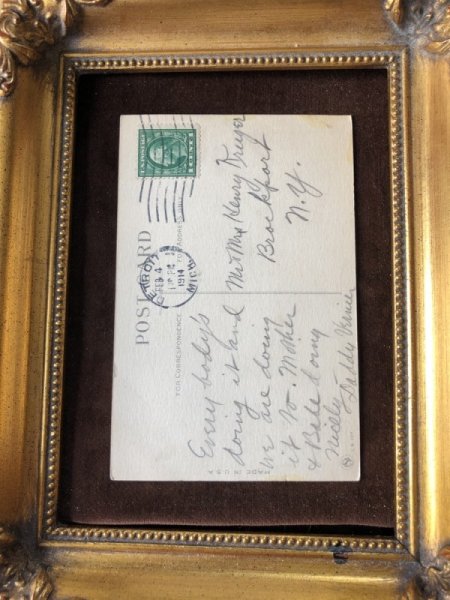 POST CARD
FOR CORRESPONDENCE
FOR ADDRESS ONLY
DETROIT
FEB 4
1914
MICH
Every body's
doing it and
we are doing
it to. Mother
& Babe doing
nicely
Daddy
Mr & Mrs Henry
Brockport
N.Y.
MADE IN U S A